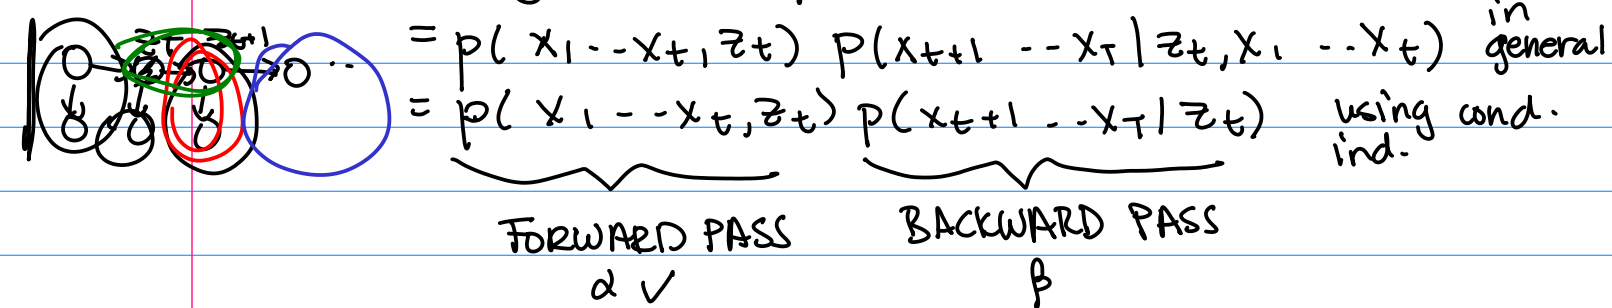 z_t z_{t+1}
= p(x_1 ... x_t, z_t) p(x_{t+1} ... x_T | z_t, x_1 ... x_t) in general
= p(x_1 ... x_t, z_t) p(x_{t+1} ... x_T | z_t) using cond. ind.
FORWARD PASS BACKWARD PASS
α ✓ β